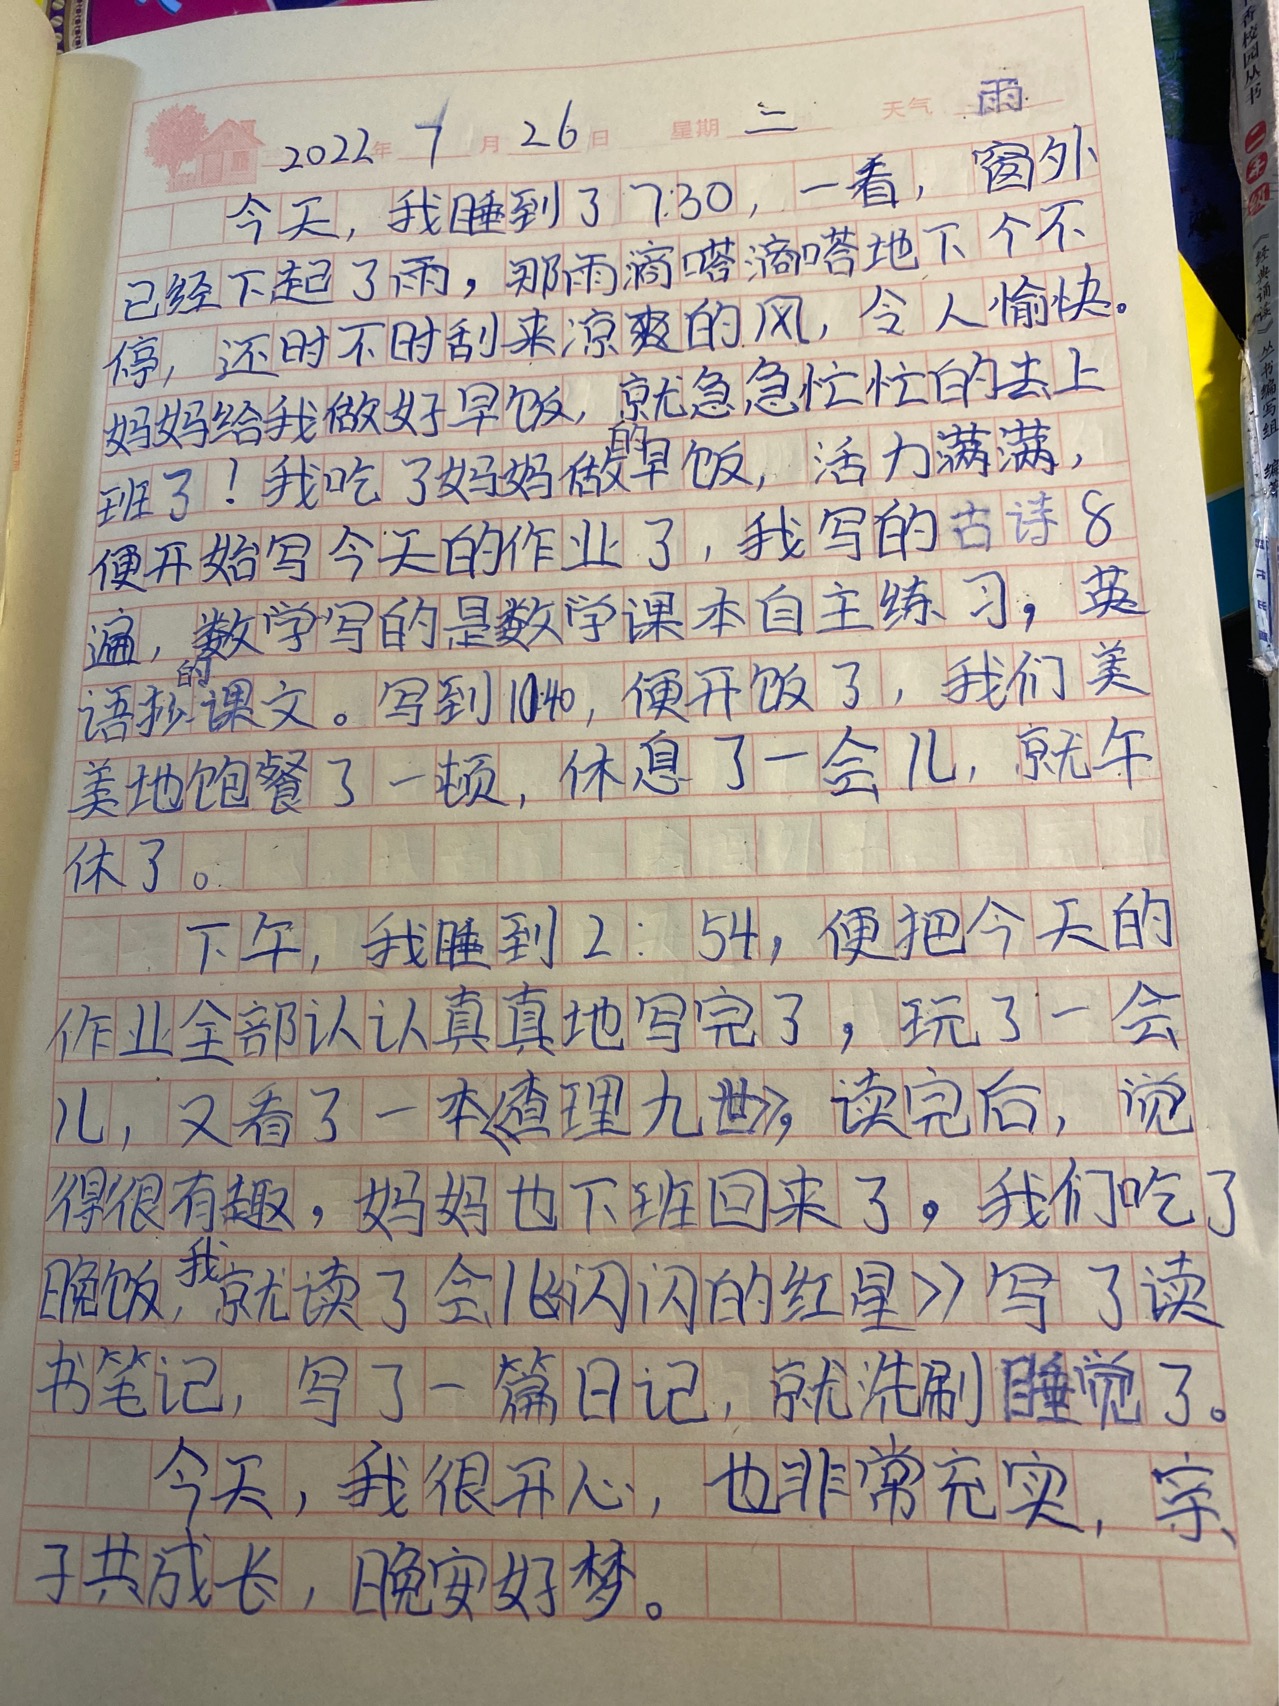 2022年 7月 26日 星期 二 天气 雨
今天，我睡到了7:30，一看，窗外
已经下起了雨，那雨滴嗒滴嗒地下个不
停，还时不时刮来凉爽的风，令人愉快。
妈妈给我做好早饭，就急急忙忙的去上
班了！我吃了妈妈做的早饭，活力满满，
便开始写今天的作业了，我写的古诗8
遍，数学写的是数学课本自主练习，英
语抄的课文。写到10:40，便开饭了，我们美
美地饱餐了一顿，休息了一会儿，就午
休了。
下午，我睡到2：54，便把今天的
作业全部认认真真地写完了，玩了一会
儿，又看了一本《查理九世》，读完后，觉
得很有趣，妈妈也下班回来了，我们吃了
晚饭，我就读了会儿《闪闪的红星》写了读
书笔记，写了一篇日记，就洗刷睡觉了。
今天，我很开心，也非常充实，亲
子共成长，晚安好梦。
香校园丛书
《经典诵读》丛书编写组 编著